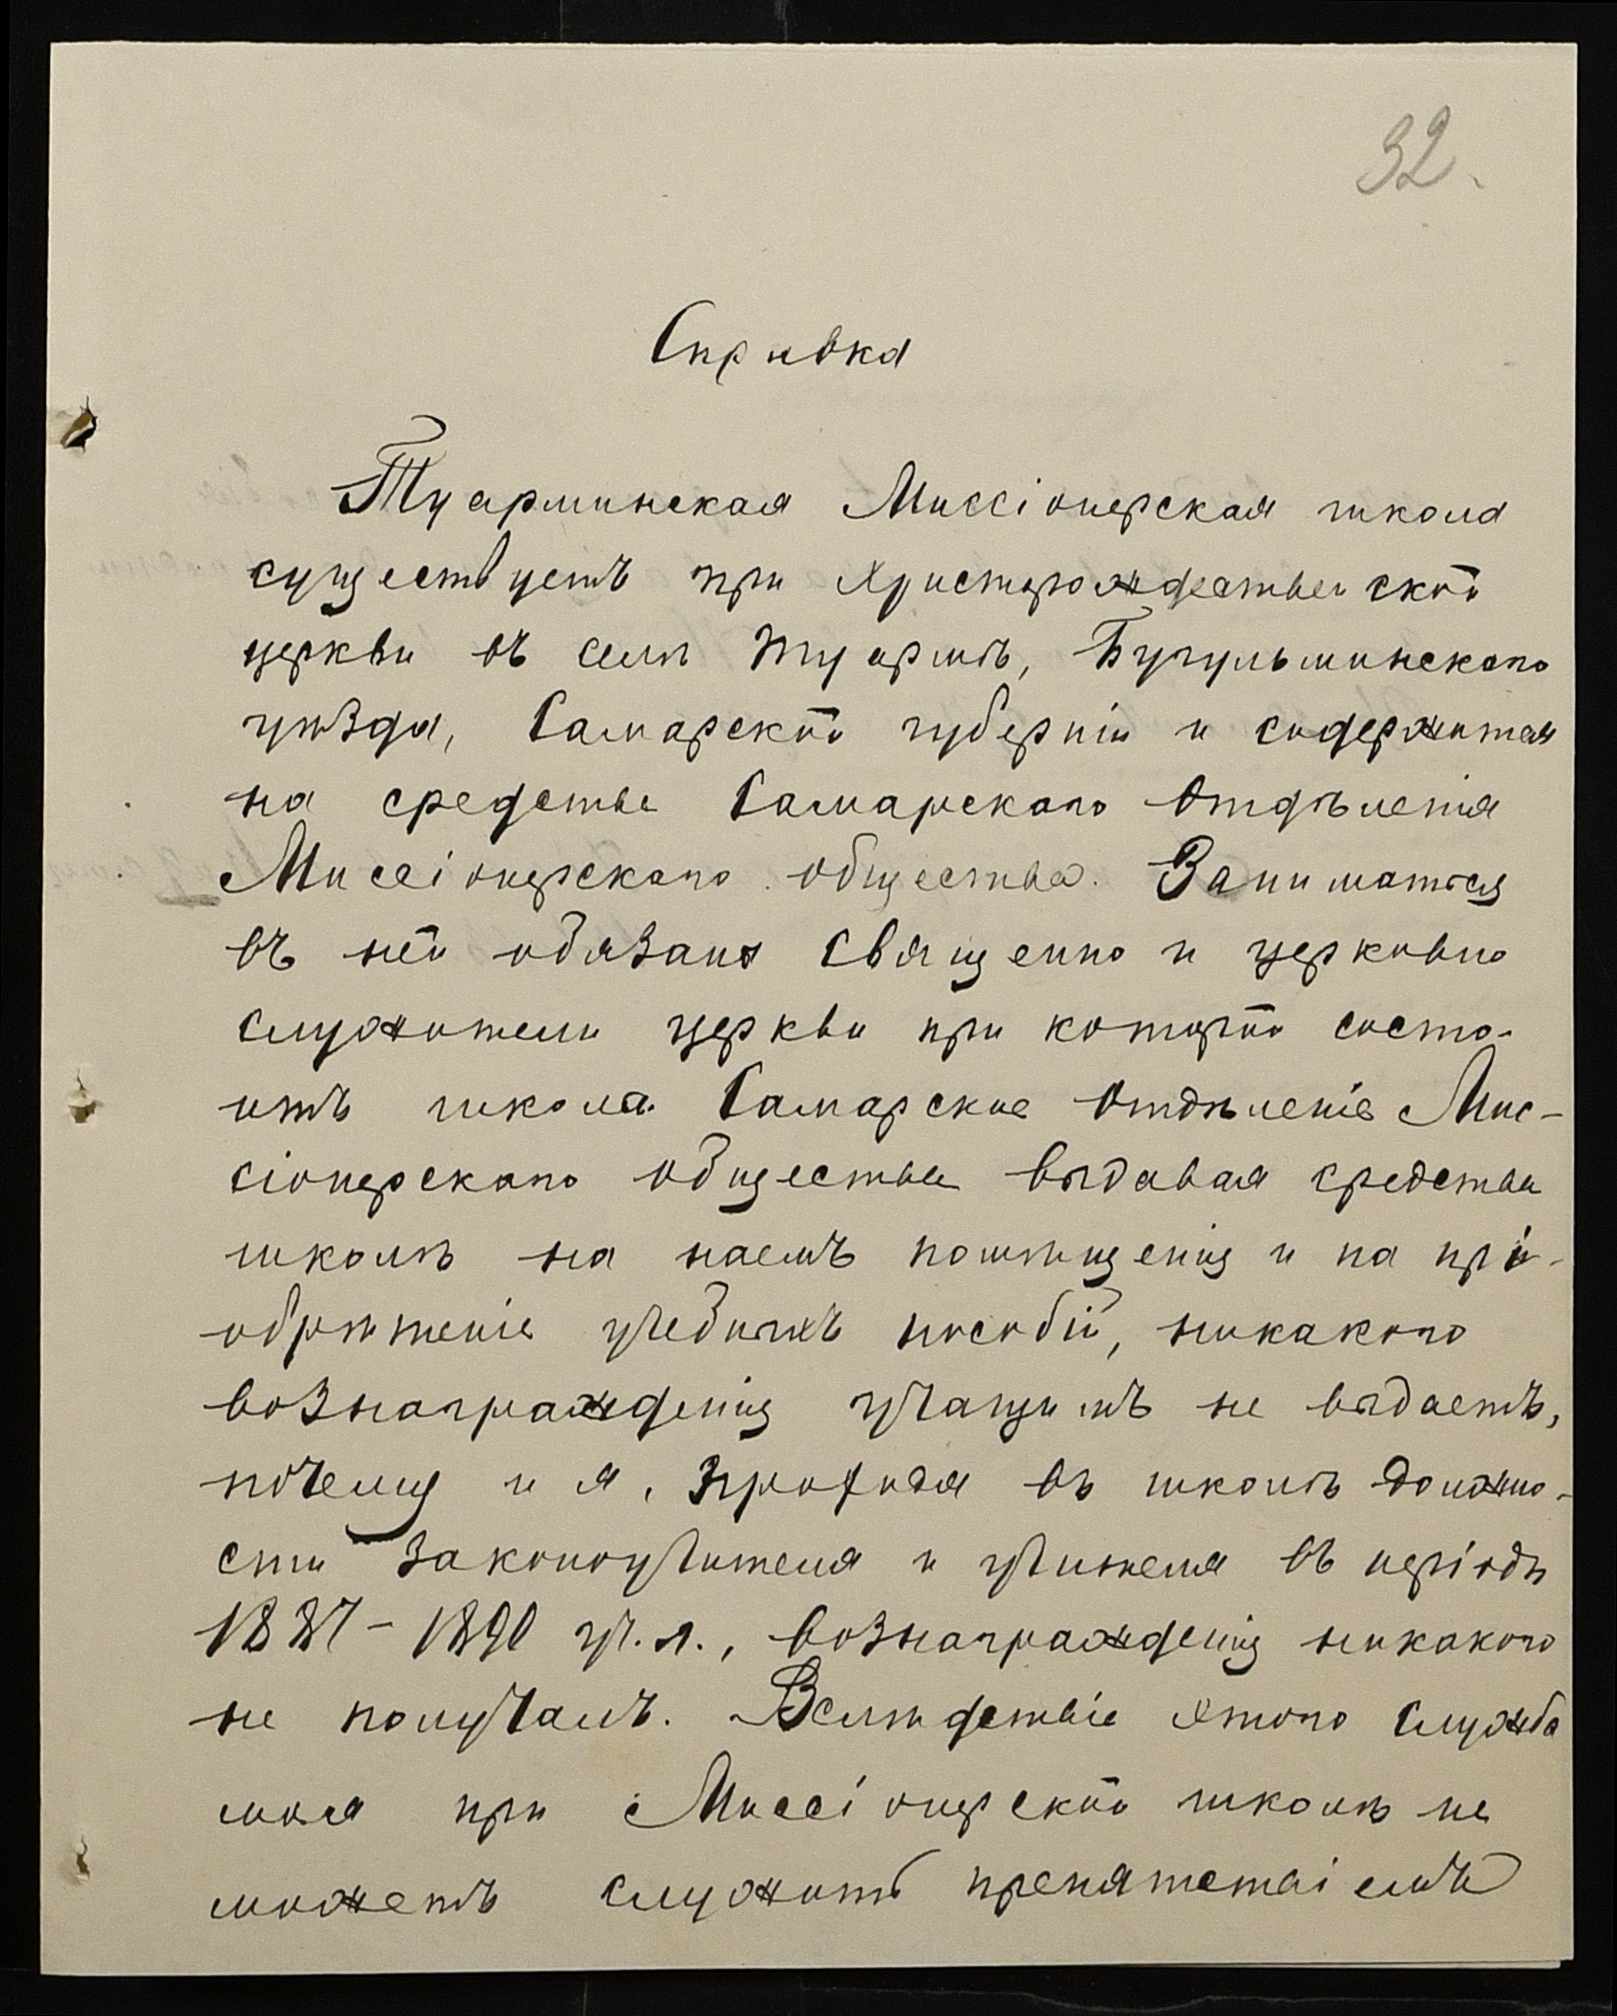 32.
Справка
Туарминская Миссіонерская школа
существуетъ при Христорождественской
церкви въ селѣ Туармѣ, Бугульминскаго
уѣзда, Самарской губерніи и содержится
на средства Самарскаго Отдѣленія
Миссіонерскаго общества. Заниматься
въ ней обязаны священно и церковно
служители церкви при которой состо-
итъ школа. Самарское Отдѣленіе Мис-
сіонерскаго общества выдавая средства
школѣ на наемъ помѣщенія и на прі-
обрѣтеніе учебныхъ пособій, никакого
вознагражденія учащимъ не выдаетъ,
почему и я, проходя въ школѣ должно-
сти законоучителя и учителя въ періодъ
1887-1890 уч. г., вознагражденія никакого
не получалъ. Вслѣдствіе этого служба
моя при Миссіонерской школѣ не
можетъ служить препятствіемъ